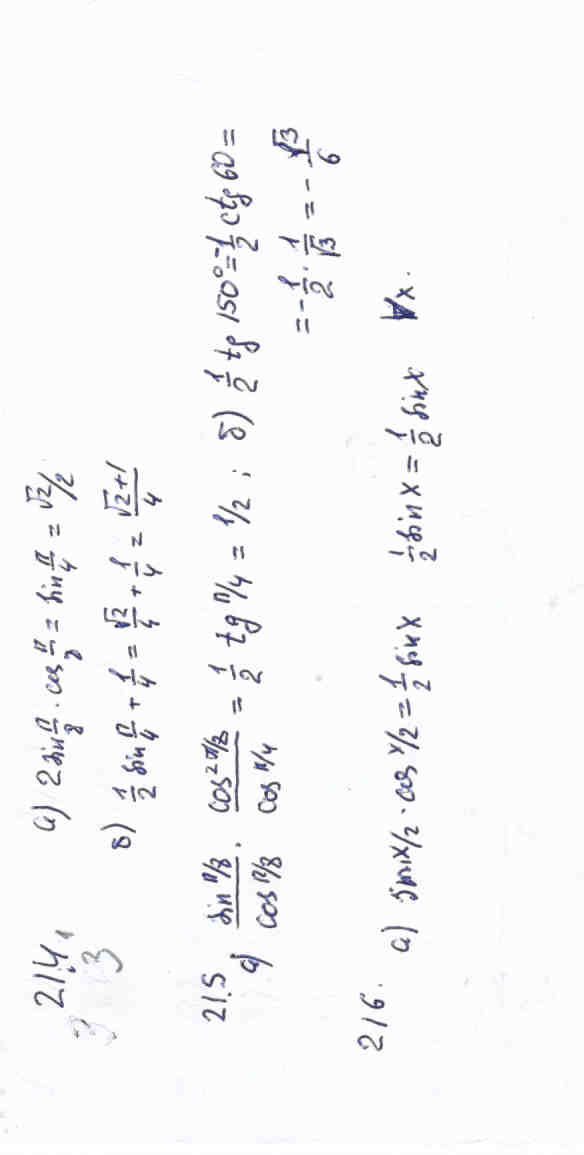 21.4.
3
а) 2 sin π/8 · cos π/8 = sin π/4 = √2/2
б) 1/2 sin π/4 + 1/4 = √2/4 + 1/4 = (√2+1)/4
21.5
а) sin π/8 / cos π/8 · cos² π/8 / cos π/4 = 1/2 tg π/4 = 1/2 ; б) 1/2 tg 150° = -1/2 ctg 60 =
= -1/2 · 1/√3 = - √3/6
216.
а) sin x/2 · cos x/2 = 1/2 sin x 1/2 sin x = 1/2 sin x ∀x.